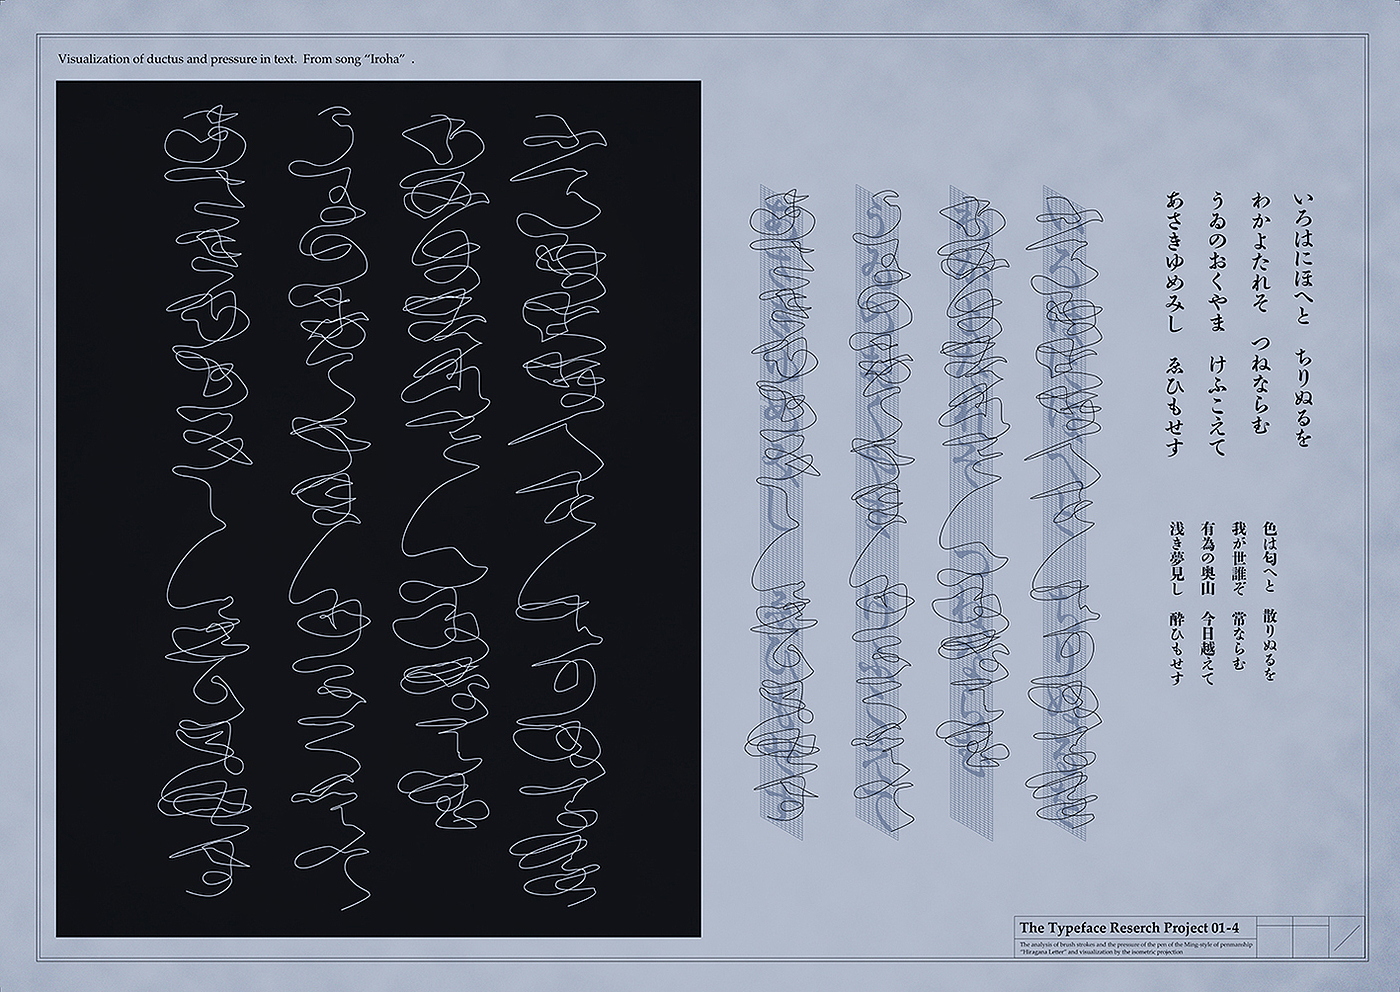 Visualization of ductus and pressure in text. From song “Iroha” .
いろはにほへと ちりぬるを
わかよたれそ つねならむ
うゐのおくやま けふこえて
あさきゆめみし ゑひもせす
色は匂へと 散りぬるを
我が世誰ぞ 常ならむ
有為の奥山 今日越えて
浅き夢見し 酔ひもせす
The Typeface Reserch Project 01-4
The analysis of brush strokes and the pressure of the pen of the Ming-style of penmanship
"Hiragana Letter" and visualization by the isometric projection